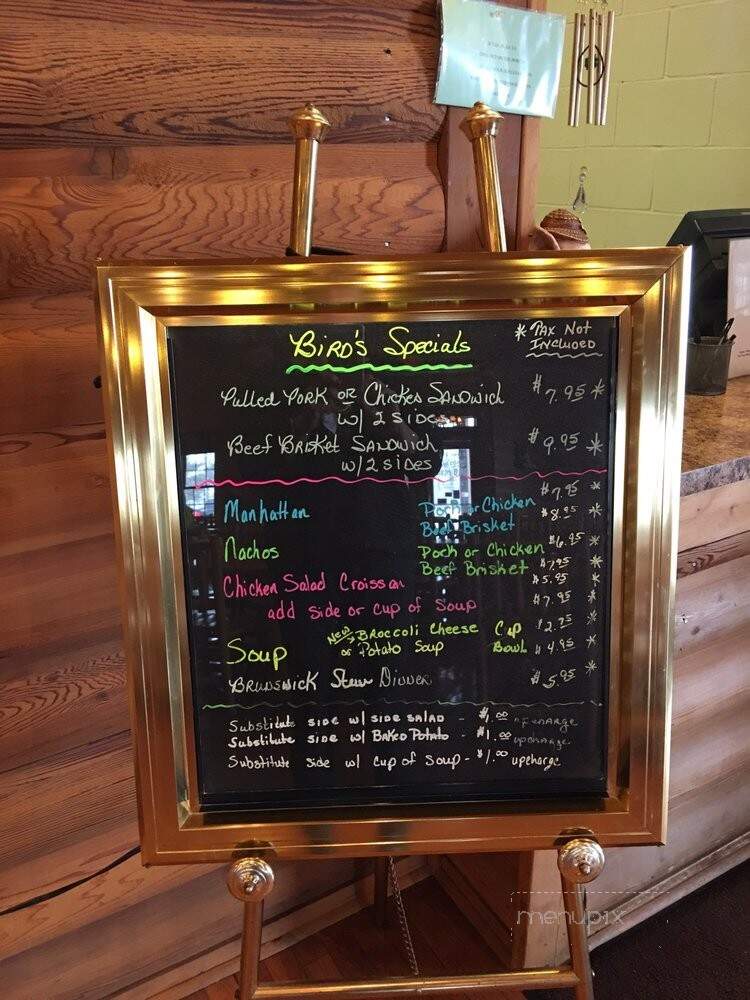 Bird's Specials
* Tax Not
Included
Pulled Pork or Chicken Sandwich
w/ 2 sides
$7.95 *
Beef Brisket Sandwich
w/ 2 sides
$9.95 *
Manhattan
Pork or Chicken $7.95 *
Beef Brisket $8.95 *
Nachos
Pork or Chicken $6.95 *
Beef Brisket $7.95 *
Chicken Salad Croissan $5.95 *
add side or cup of soup $7.95 *
Soup
New → Broccoli Cheese Cup $2.75 *
or Potato Soup Bowl $4.95 *
Brunswick Stew Dinner $5.95 *
Substitute side w/ side salad - $1.00 upcharge
Substitute side w/ Baked Potato - $1.00 upcharge
Substitute side w/ cup of soup - $1.00 upcharge
menupix